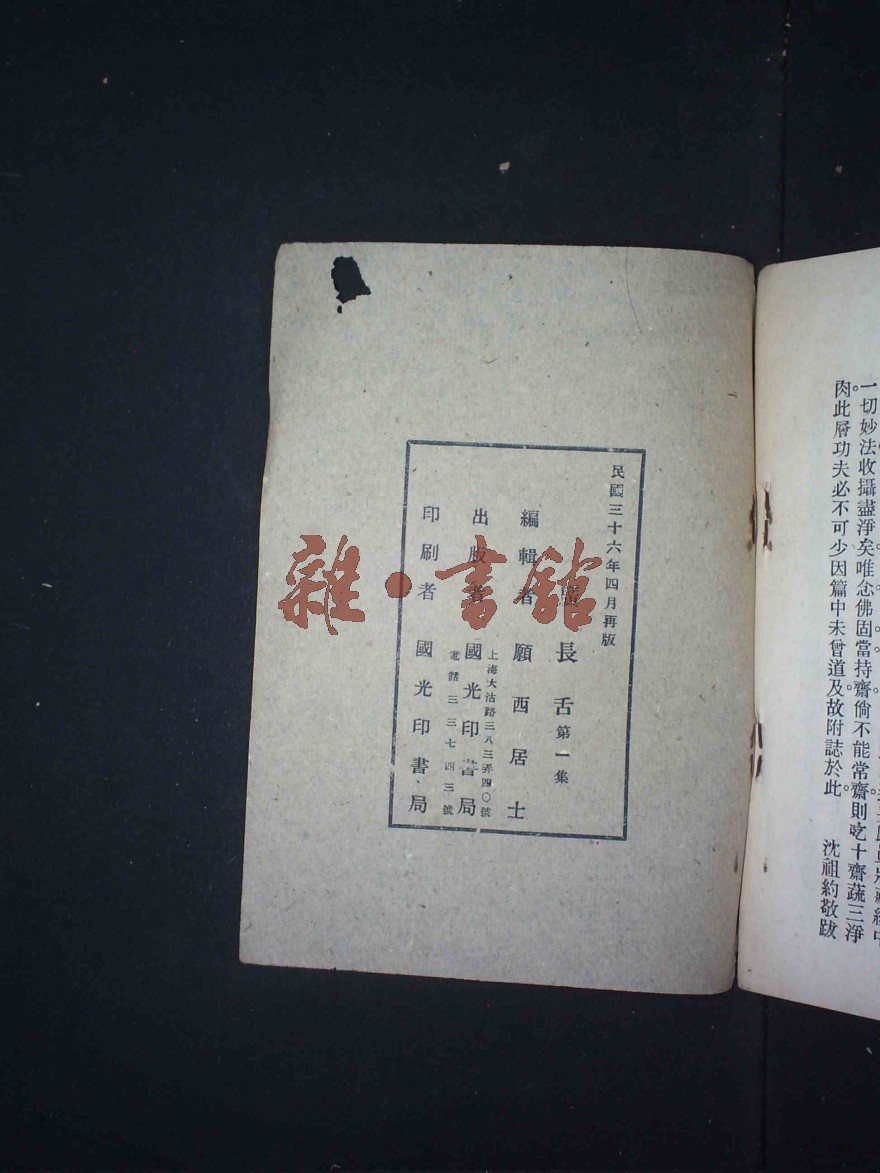 一切妙法收攝盡淨矣唯念佛固當持齋倘不能常齋則吃十齋蔬三淨
肉此層功夫必不可少因篇中未曾道及故附誌於此。 沈祖約敬跋
民國三十六年四月再版
長舌第一集
編輯者 願西居士
上海大沽路三八三弄四〇號
出版者 國光印書局
電話三三七四三號
印刷者 國光印書局
雜·書館